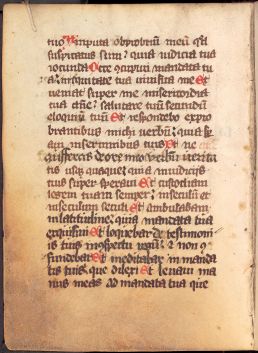 tuo Amputa obprobriū meū qd
suspicatus sum : quia iudicia tua
iocunda Ecce 9cupiui mandata tu
a : in equitate tua uiuifica me Et
ueniat super me misericordia
tua dñe : salutare tuū secundū
eloquiū tuū Et respondebo expro
brantibus michi uerbū : quia spe
raui in sermonibus tuis Et ne
auferas de ore meo uerbū uerita
tis usq; quaq; : quia in iudiciis
tuis super speraui Et custodiam
legem tuam semper : in seculū et
in seculum seculi Et ambulabam
in latitudine : quia mandata tua
exquisiui Et loquebar de testimoni
is tuis in 9spectu regū : 7 non 9
fundebar Et meditabar in manda
tis tuis : que dilexi Et leuaui ma
nus meas ad mandata tua que